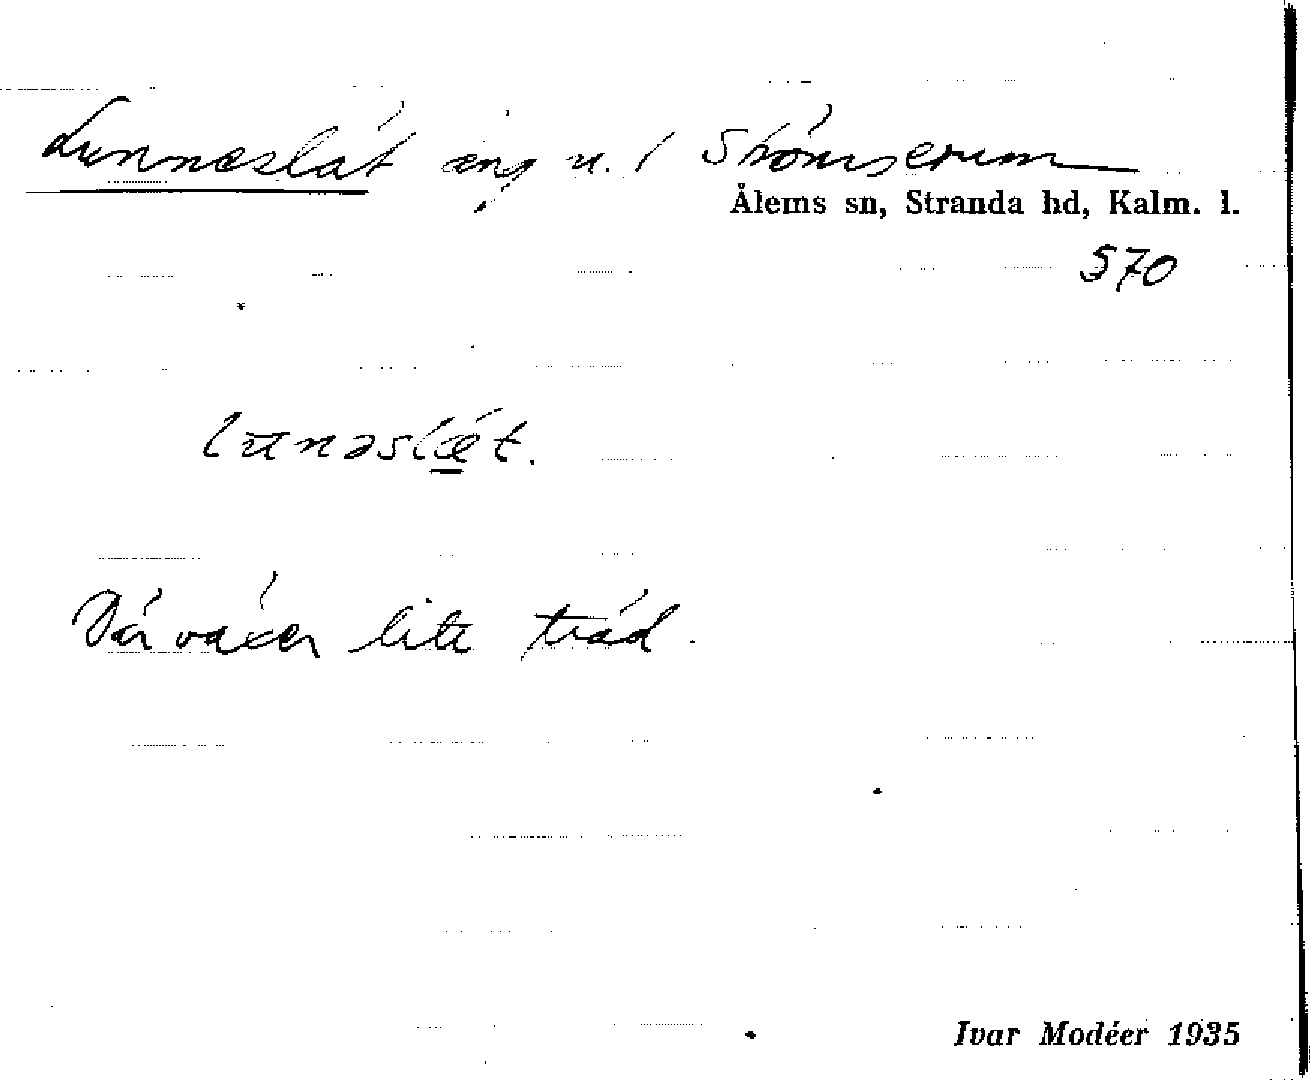 Lunneslät äng u. / Strömserum
Ålems sn, Stranda hd, Kalm. l.
570
lunəslǽ̲t.
Där växer lite träd.
Ivar Modéer 1935